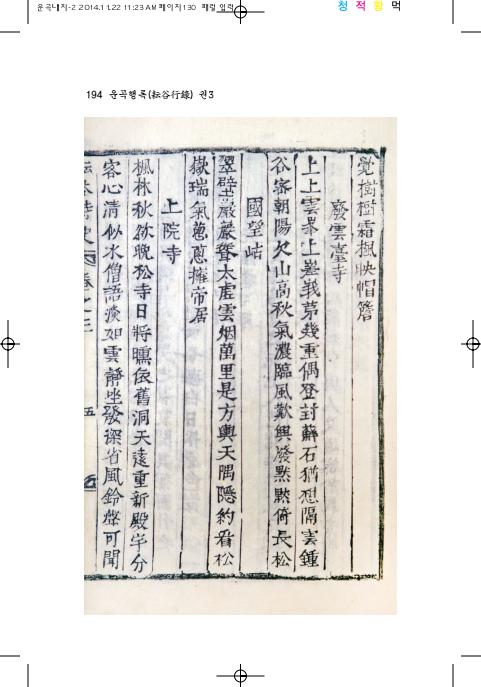 운곡내지-2 2014.11.22 11:23 AM 페이지130 패럴 입력
청 적 황 먹
194 운곡행록(耘谷行錄) 권3
覺樹樹霜楓映帽簷
廢雲臺寺
上上雲峯上峯峩苐幾重偶登封蘚石猶想隔雲鍾
谷密朝陽欠山高秋氣濃臨風歎興廢黙黙倚長松
國望岵
翠壁巖巖聳太虛雲烟萬里是方輿天隅隱約看松
嶽瑞氣蔥蔥擁帝居
上院寺
楓林秋欲晩松寺日將曛依舊洞天遠重新殿宇分
客心清似水僧語淡如雲靜坐發深省風鈴聲可聞
五